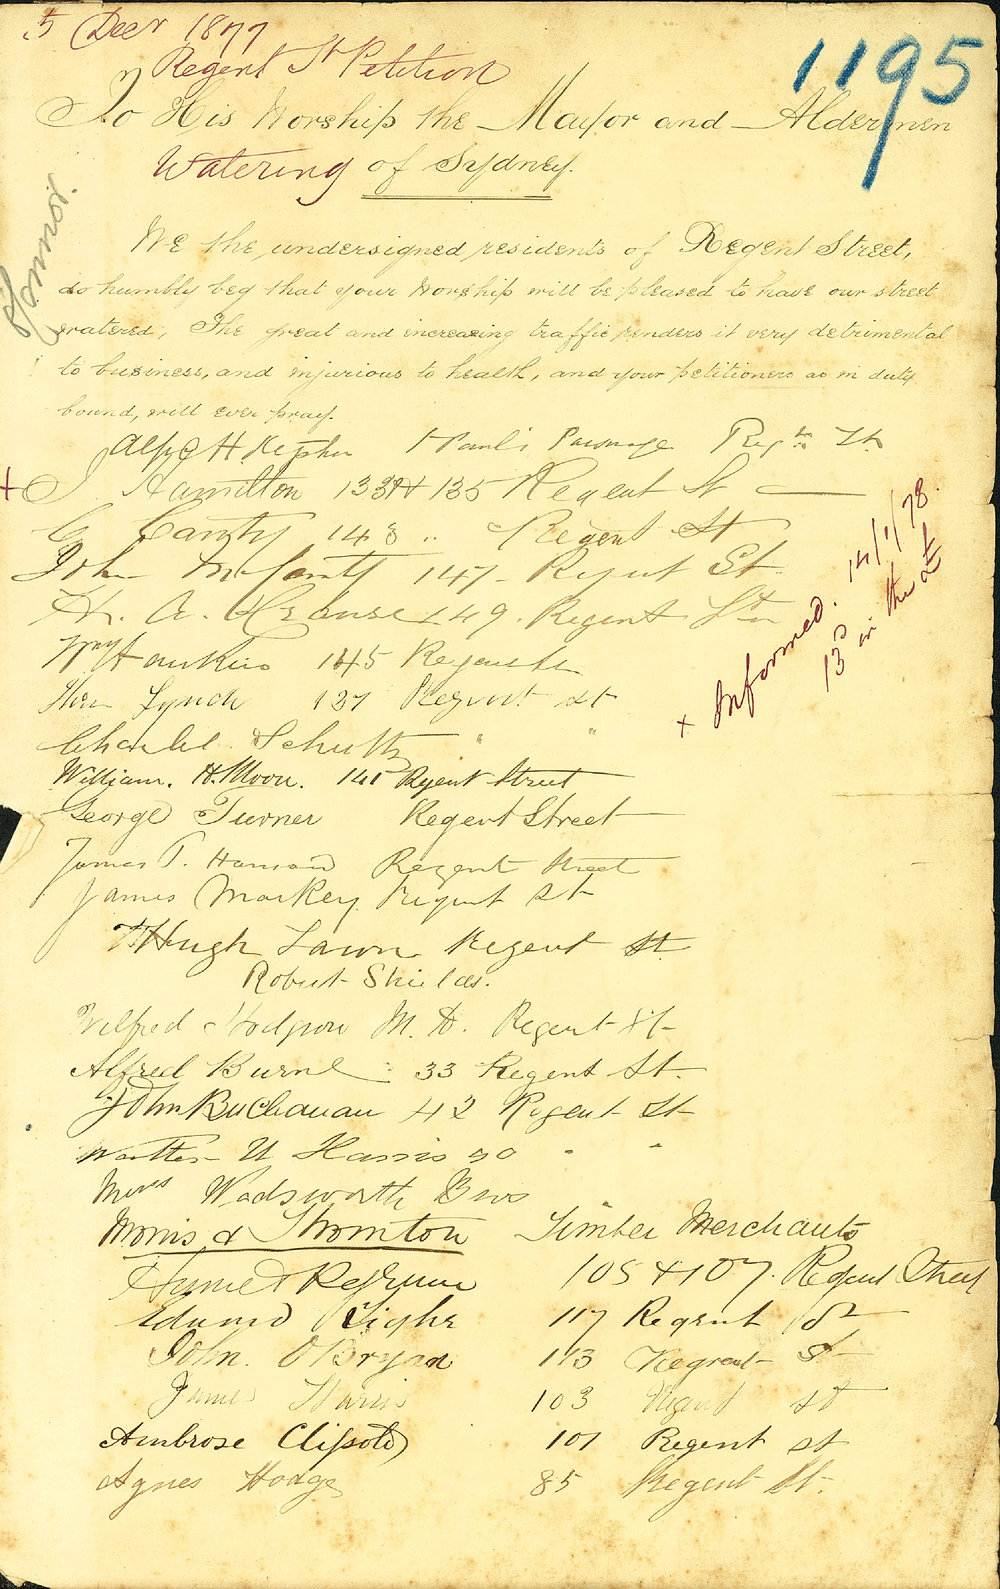 5 Decr 1877
1195
Regent St Petition
To His Worship the Mayor and Aldermen
Watering
of Sydney.
We the undersigned residents of Regent Street,
do humbly beg that your Worship will be pleased to have our street
watered; The great and increasing traffic renders it very detrimental
to business, and injurious to health, and your petitioners as in duty
bound, will ever pray.
St Paul's Parsonage Regt St
J Hamilton 133 & 135 Regent St
148 " Regent St
John 147 - Regent St.
149. Regent St
Wm Hawkins 145 Regent St
Lynch 137 Regent st
Charles Schultz " "
William. H. Moon. 141 Regent Street
George Turner Regent Street
James T. Regent Street
James Markey Regent St
Hugh Lawn Regent St
Robert Shields.
Wilfred Hodgson M. D. Regent St
Alfred Burne 33 Regent St.
John Buchanan 42 Regent St
Walter U Harris 70 " "
Messrs Wadsworth Bros
Morris & Thornton Timber Merchants
105 & 107. Regent Street
Edward Tighe 117 Regent St
John. O'Bryan 113 Regent St
James Harris 103 Regent st
Ambrose 101 Regent st
Agnes Hodge 85 Regent St.
+ Informed. 14/1/78.
13s in the £